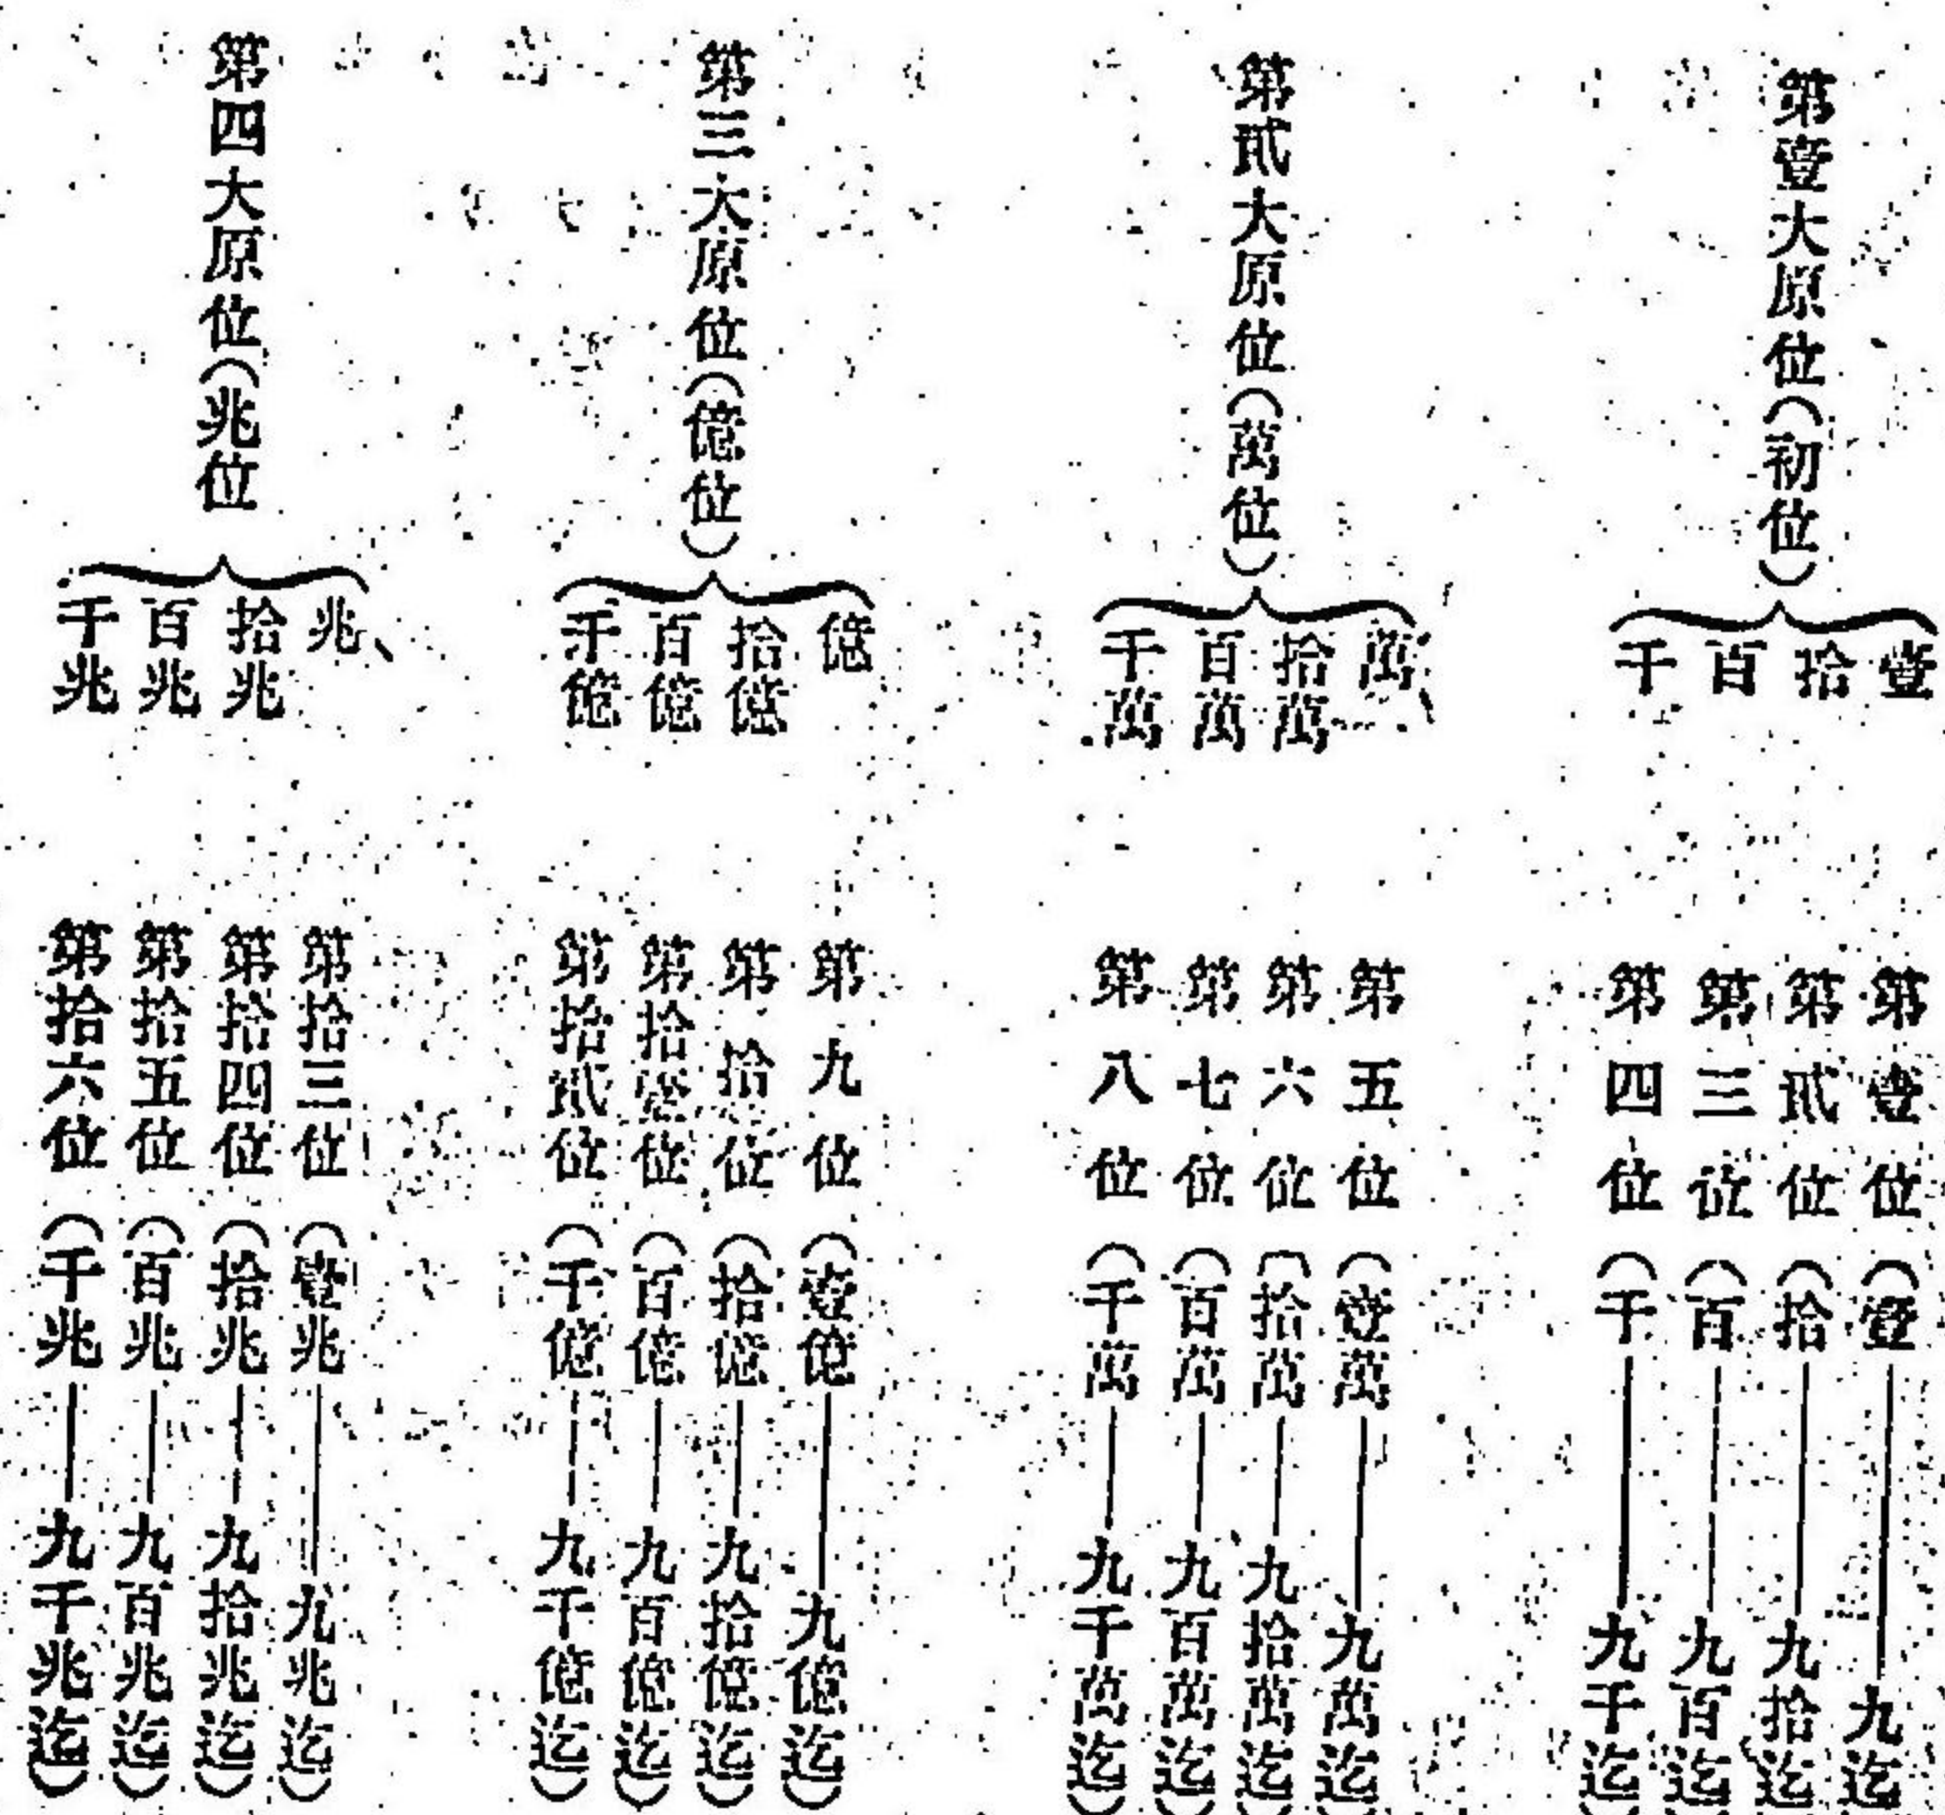 第壹大原位（初位）
壹
拾
百
千
第壹位（壹――九迄
第貳位（拾――九拾迄
第三位（百――九百迄
第四位（千――九千迄
第貳大原位（萬位）
萬
拾萬
百萬
千萬
第五位（壹萬――九萬迄）
第六位（拾萬――九拾萬迄）
第七位（百萬――九百萬迄）
第八位（千萬――九千萬迄）
第三大原位（億位）
億
拾億
百億
千億
第九位（壹億――九億迄）
第拾位（拾億――九拾億迄）
第拾壹位（百億――九百億迄）
第拾貳位（千億――九千億迄）
第四大原位（兆位
兆
拾兆
百兆
千兆
第拾三位（壹兆――九兆迄）
第拾四位（拾兆――九拾兆迄）
第拾五位（百兆――九百兆迄）
第拾六位（千兆――九千兆迄）